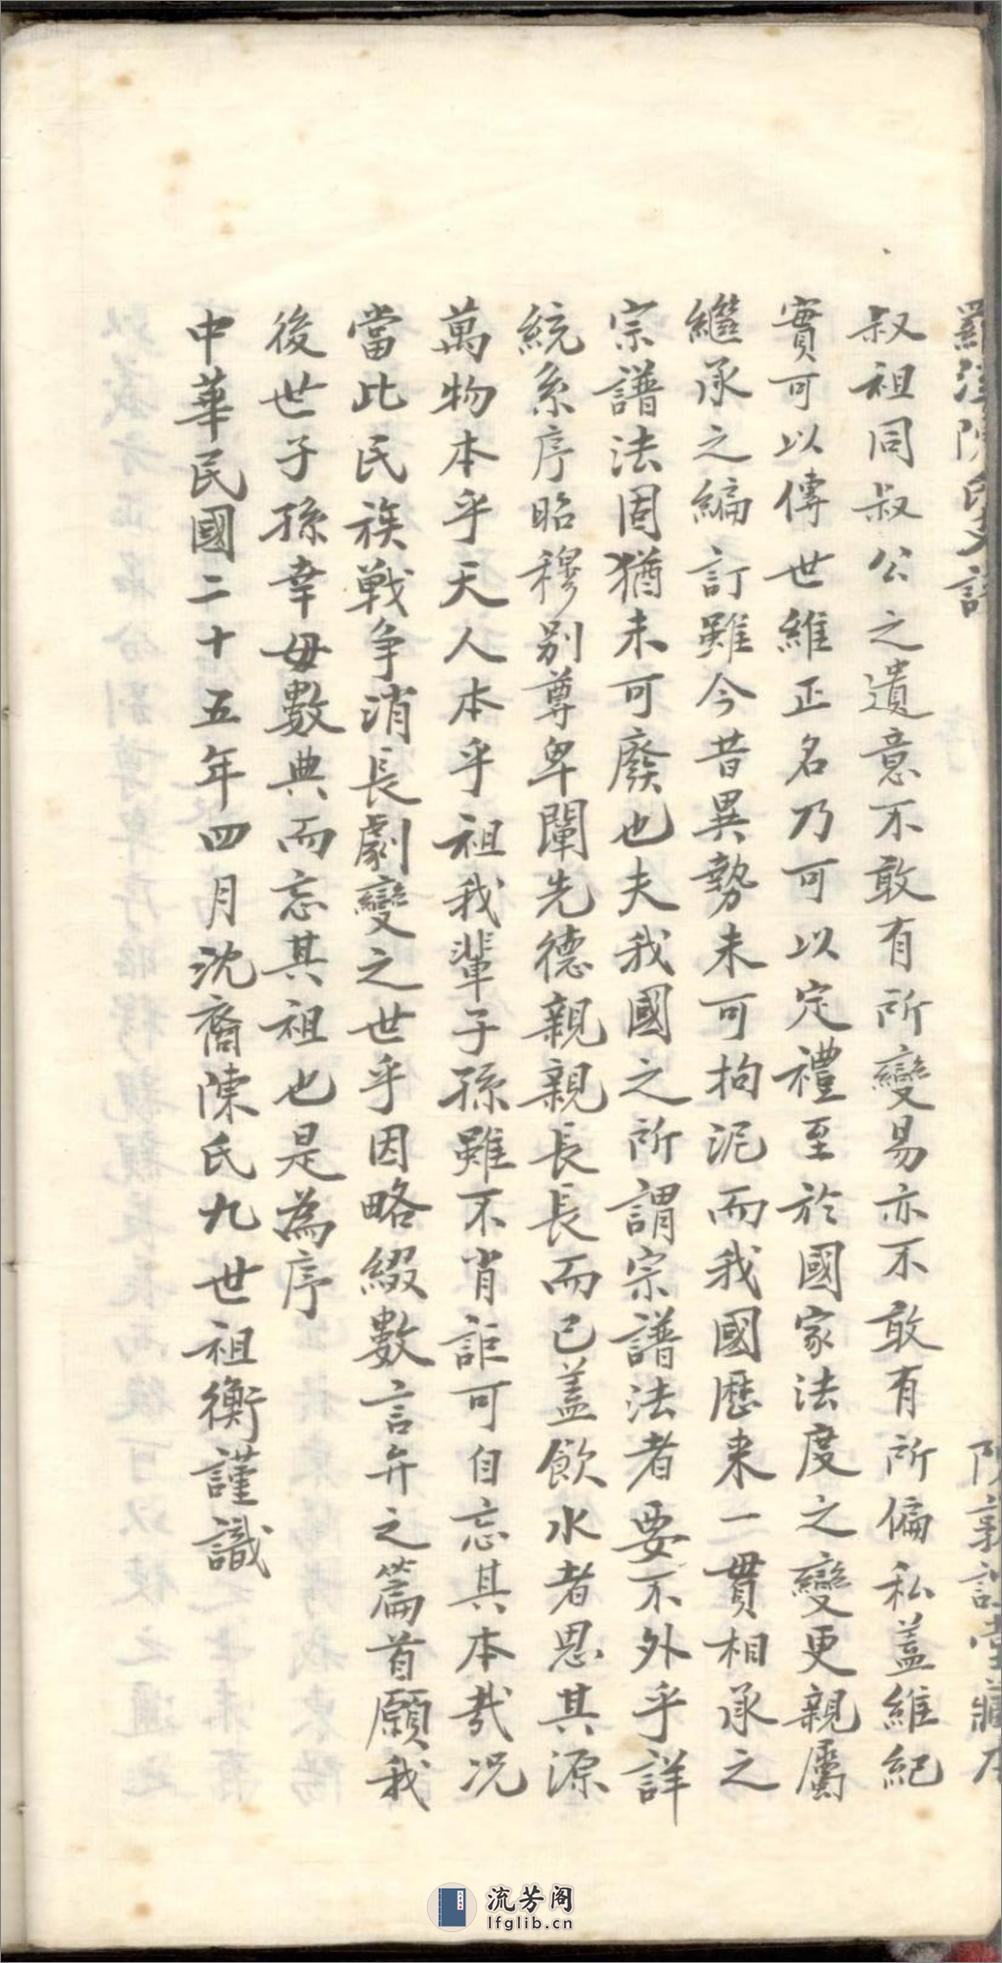 羅 陳氏支譜
陳 堂藏本
叔祖同叔公之遺意不敢有所變易亦不敢有所偏私蓋維紀
實可以傳世維正名乃可以定禮至於國家法度之變更親屬
繼承之編訂雖今昔異勢未可拘泥而我國歷来一貫相承之
宗譜法固猶未可廢也夫我國之所謂宗譜法者要不外乎詳
統系序昭穆别尊卑闡先德親親長長而已蓋飲水者思其源
萬物本乎天人本乎祖我輩子孫雖不肖詎可自忘其本哉况
當此民族戰争消長劇變之世乎因略綴數言弁之篇首願我
後世子孫幸毋數典而忘其祖也是為序
中華民國二十五年四月沈裔陳氏九世祖衡謹識
流芳阁
lfglib.cn